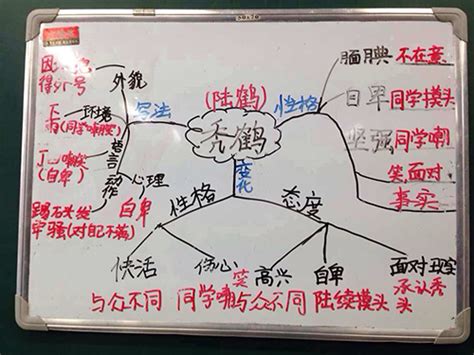 50×70
外貌
得外号
环境
(同学嘲
写法
语言
(自卑)
动作
心理
自卑
牢骚(对自己不满)
(陆鹤)
秃鹤
变化
性格
腼腆 不在意
自卑 同学摸头
坚强 同学嘲
笑面对
事实
性格
态度
快活
伤心
高兴
自卑
面对
承认秃
头
与众不同
同学嘲
笑
与众不同
陆续摸头